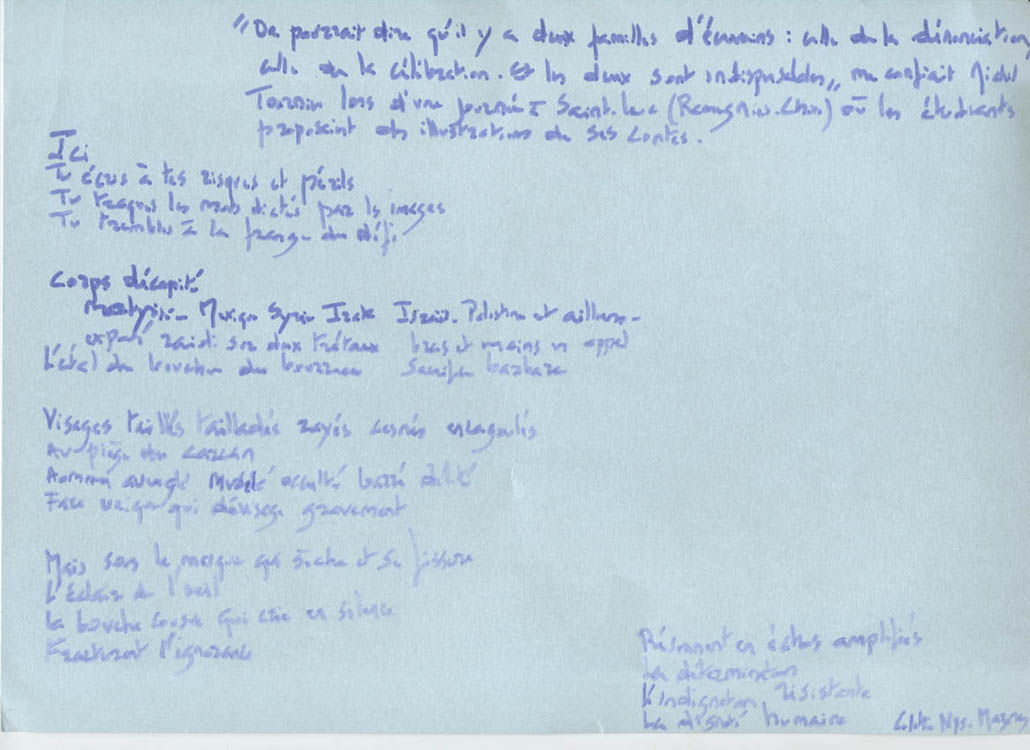 "On pourrait dire qu'il y a deux familles d'écrivains : celle de la dénonciation,
celle de la célébration. Et les deux sont indispensables", me confiait Michel
Tournier lors d'une journée à Saint-Luc (Ramegnies-Chin) où les étudiants
proposaient des illustrations de ses contes.
Ici
Tu écris à tes risques et périls
Tu traques les mots dictés par les images
Tu trembles à la frange du défi
Corps décapité
Mexique Syrie Irak Israël-Palestine et ailleurs-
exposé raidi sur deux tréteaux bras et mains en appel
L'étal du boucher du bourreau Sacrifice barbare
Visages taillés tailladés rayés cernés encagoulés
Au piège du carcan
Homme aveuglé muselé occulté barré
Face unique qui dévisage gravement
Mais sous le masque qui sèche et se fissure
L'éclair de l'oeil
La bouche cousue qui crie en silence
Fracturent l'ignorance
Résonnent en échos amplifiés
La détermination
L'indignation résistante
La dignité humaine Colette Nys-Mazure